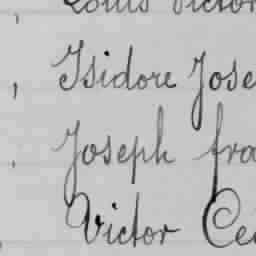 Louis Victor
Isidore Jose
Joseph fra
Victor Cé